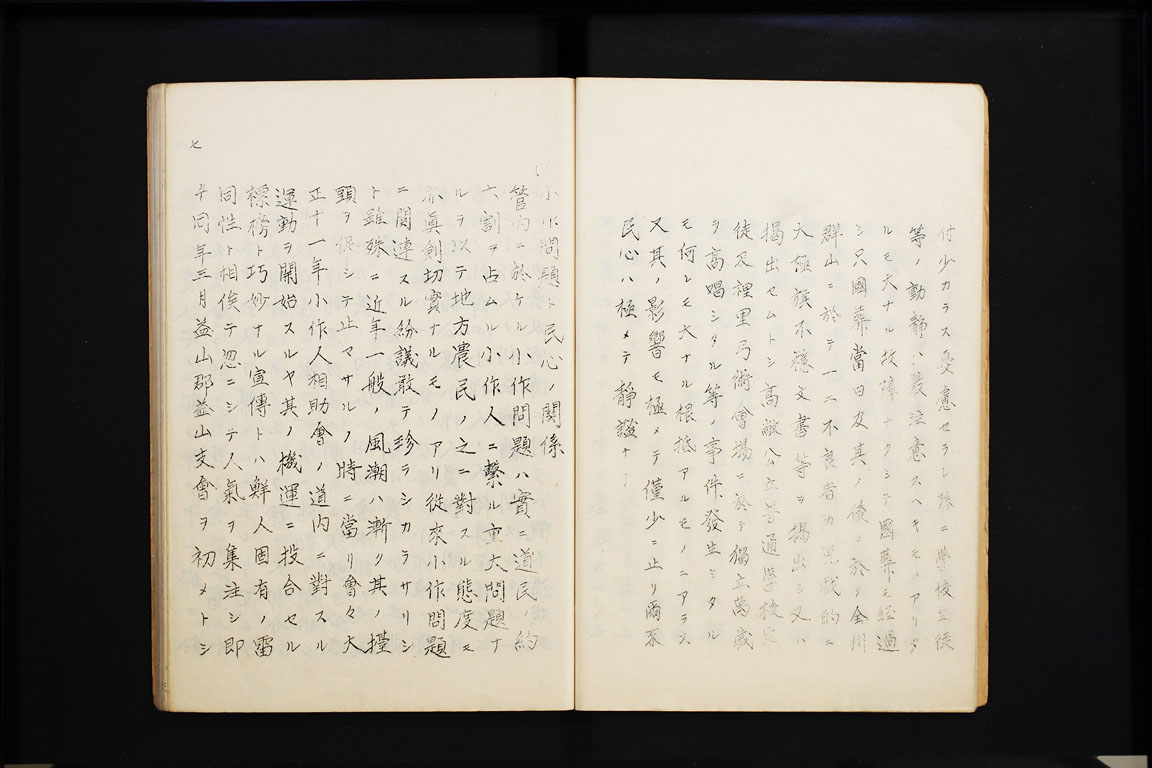 付少カラス憂慮セラレ殊ニ學校生徒
等ノ動靜ハ最注意スヘキモノアリタ
ルモ大ナル故障ナクシテ國葬モ経過
シ只國葬當日及其ノ後ニ於テ金川
群山ニ於テ一二不良者カ児戯的ニ
大極旗不穩文書等ヲ掲出シ又ハ
掲出セムトシ高敞公立普通學校生
徒及裡里弓術會場ニ於テ獨立萬歳
ヲ高唱シタル等ノ事件發生シタル
モ何レモ大ナル根抵アルモノニアラス
又其ノ影響モ極メテ僅少ニ止リ爾来
民心ハ極メテ靜謐ナリ
小作問題ト民心ノ関係
管内ニ於ケル小作問題ハ實ニ道民ノ約
六割ヲ占ムル小作人ニ繋ル重大問題ナ
ルヲ以テ地方農民ノ之ニ對スル態度モ
亦眞剣切實ナルモノアリ従來小作問題
ニ関連スル紛議敢テ珍ラシカラサリシ
ト雖殊ニ近年一般ノ風潮ハ漸ク其ノ擡
頭ヲ促シテ止マサルノ時ニ當リ會々大
正十一年小作人相助會ノ道内ニ對スル
運動ヲ開始スルヤ其ノ機運ニ投合セル
標榜ト巧妙ナル宣傳トハ鮮人固有ノ雷
同性ト相俟テ忽ニシテ人氣ヲ集注シ即
チ同年三月益山郡益山支會ヲ初メトシ
七